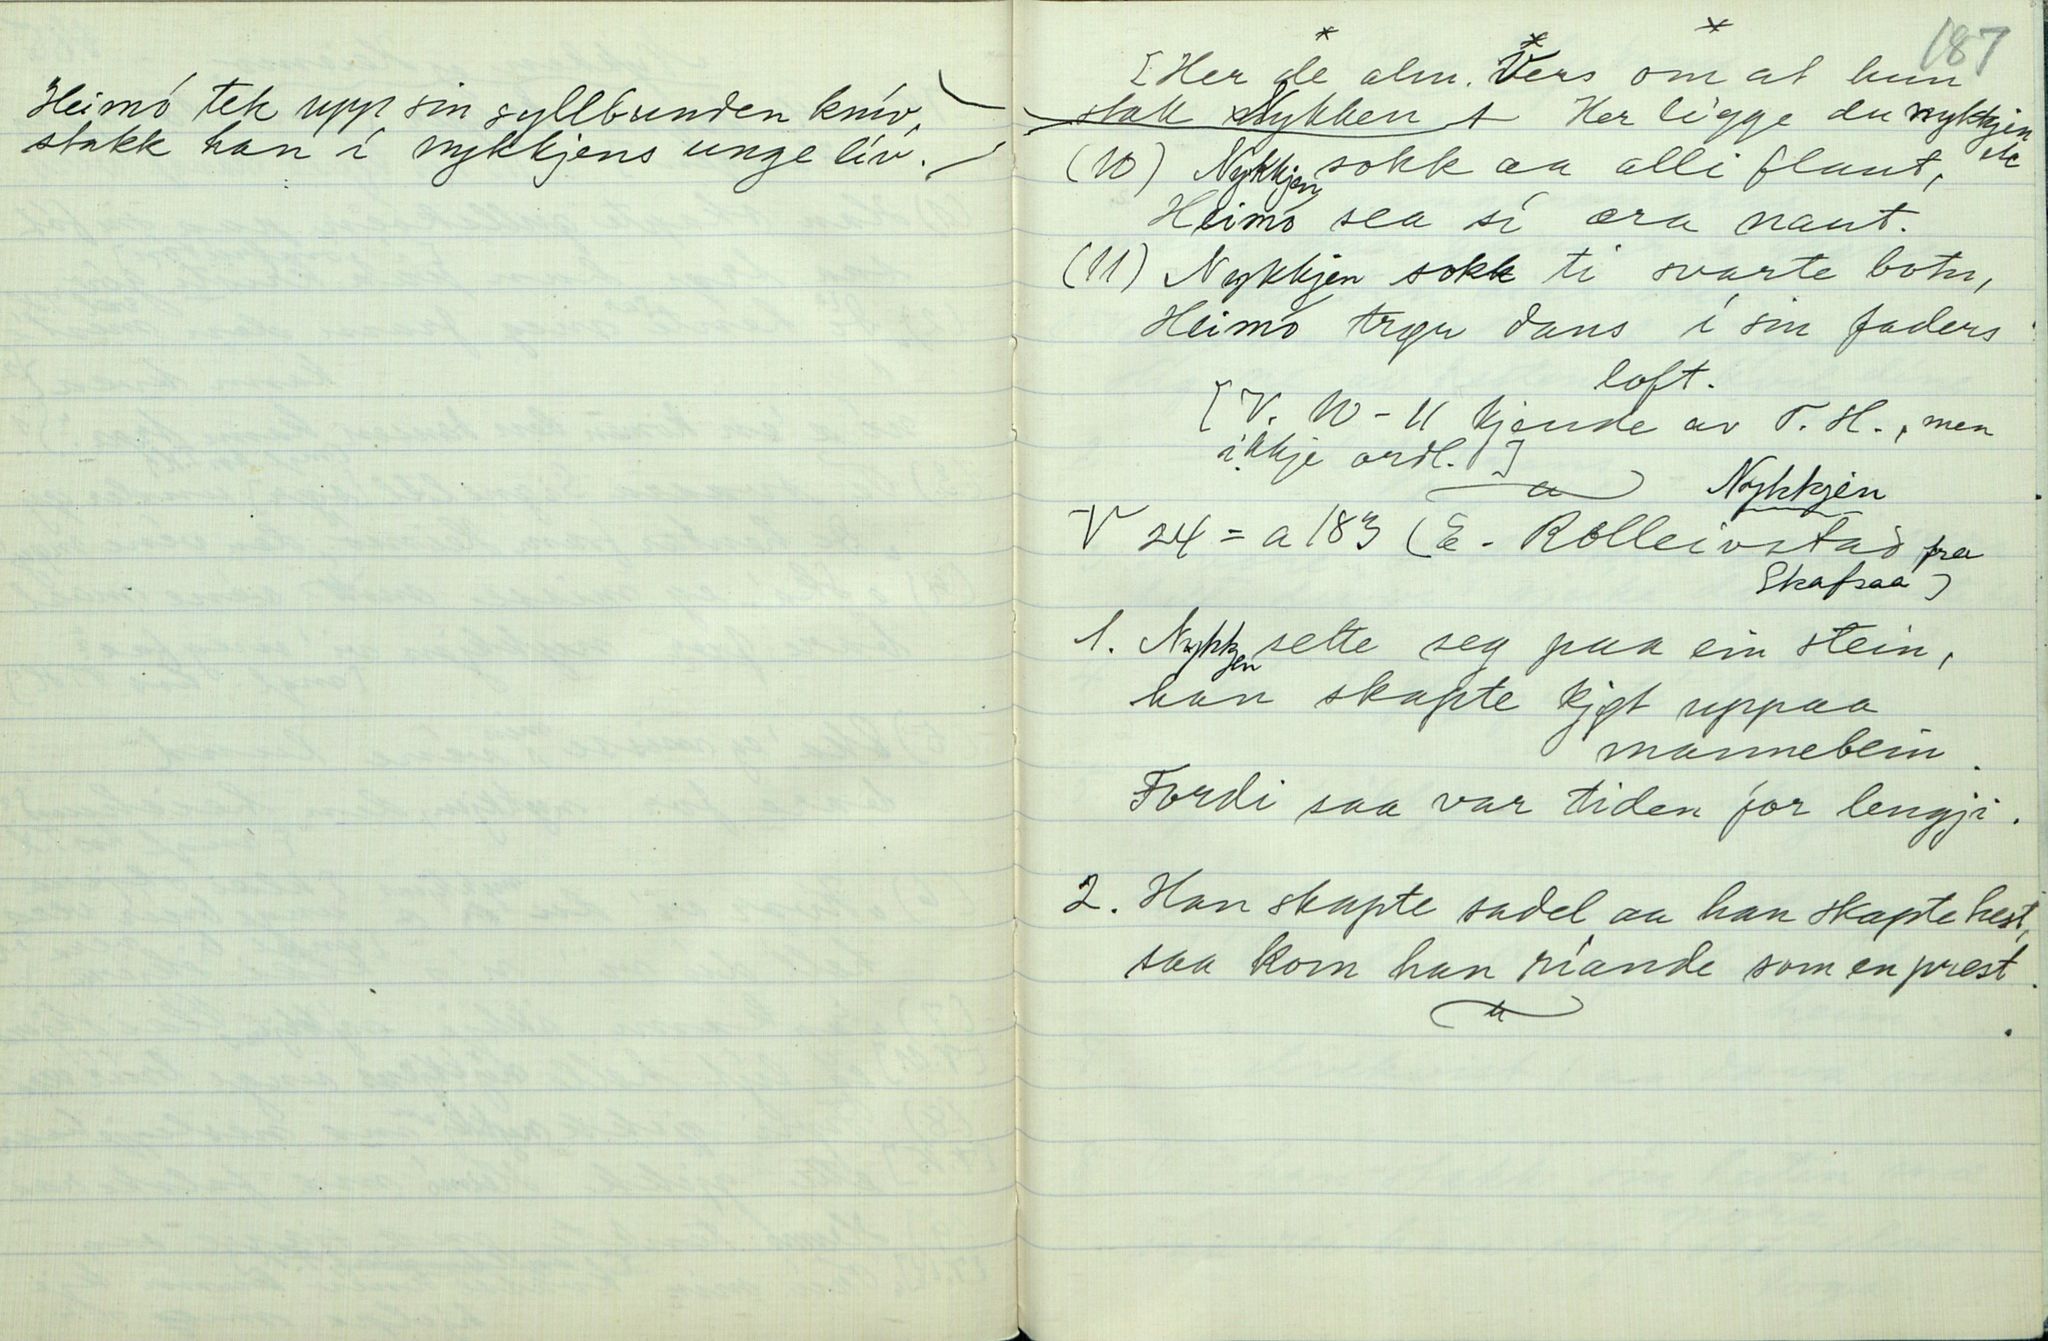 Heimó tek upp sin syllbunden kniv,
stakk han i nykkjens unge liv.
187
[Her de alm. Vers om at hun
stak Nykken Her ligge du nykkjen etc
(10) Nykkjen sokk aa alli flaut,
Heimó sea si æra naut.
(11) Nykkjen sokk ti svarte botn,
Heimó trør dans i sin faders
loft.
[V. 10-11 kjende av T. H., men
ikkje ordl.]
Nykkjen
V 24 = a 183 (E. Rolleivstad fra
Skafsaa)
1. Nykkjen sette seg paa ein stein,
han skapte kjøt uppaa
mannebein.
Fordi saa var tiden for lengji.
2. Han skapte sadel aa han skapte hest,
saa kom han riande som en prest.